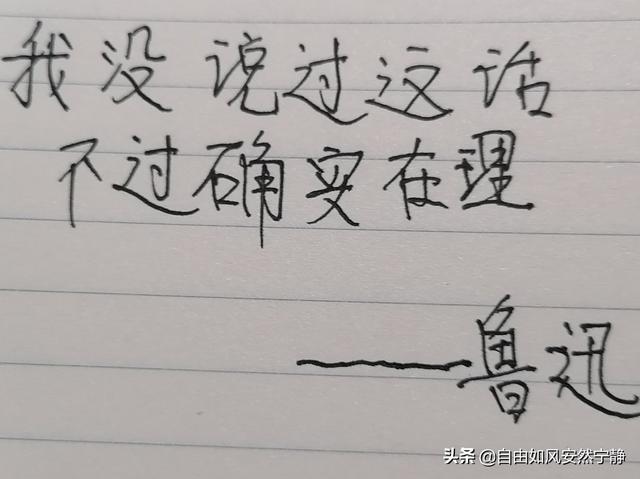 我没说过这话
不过确实在理
——鲁迅
头条 @自由如风安然宁静